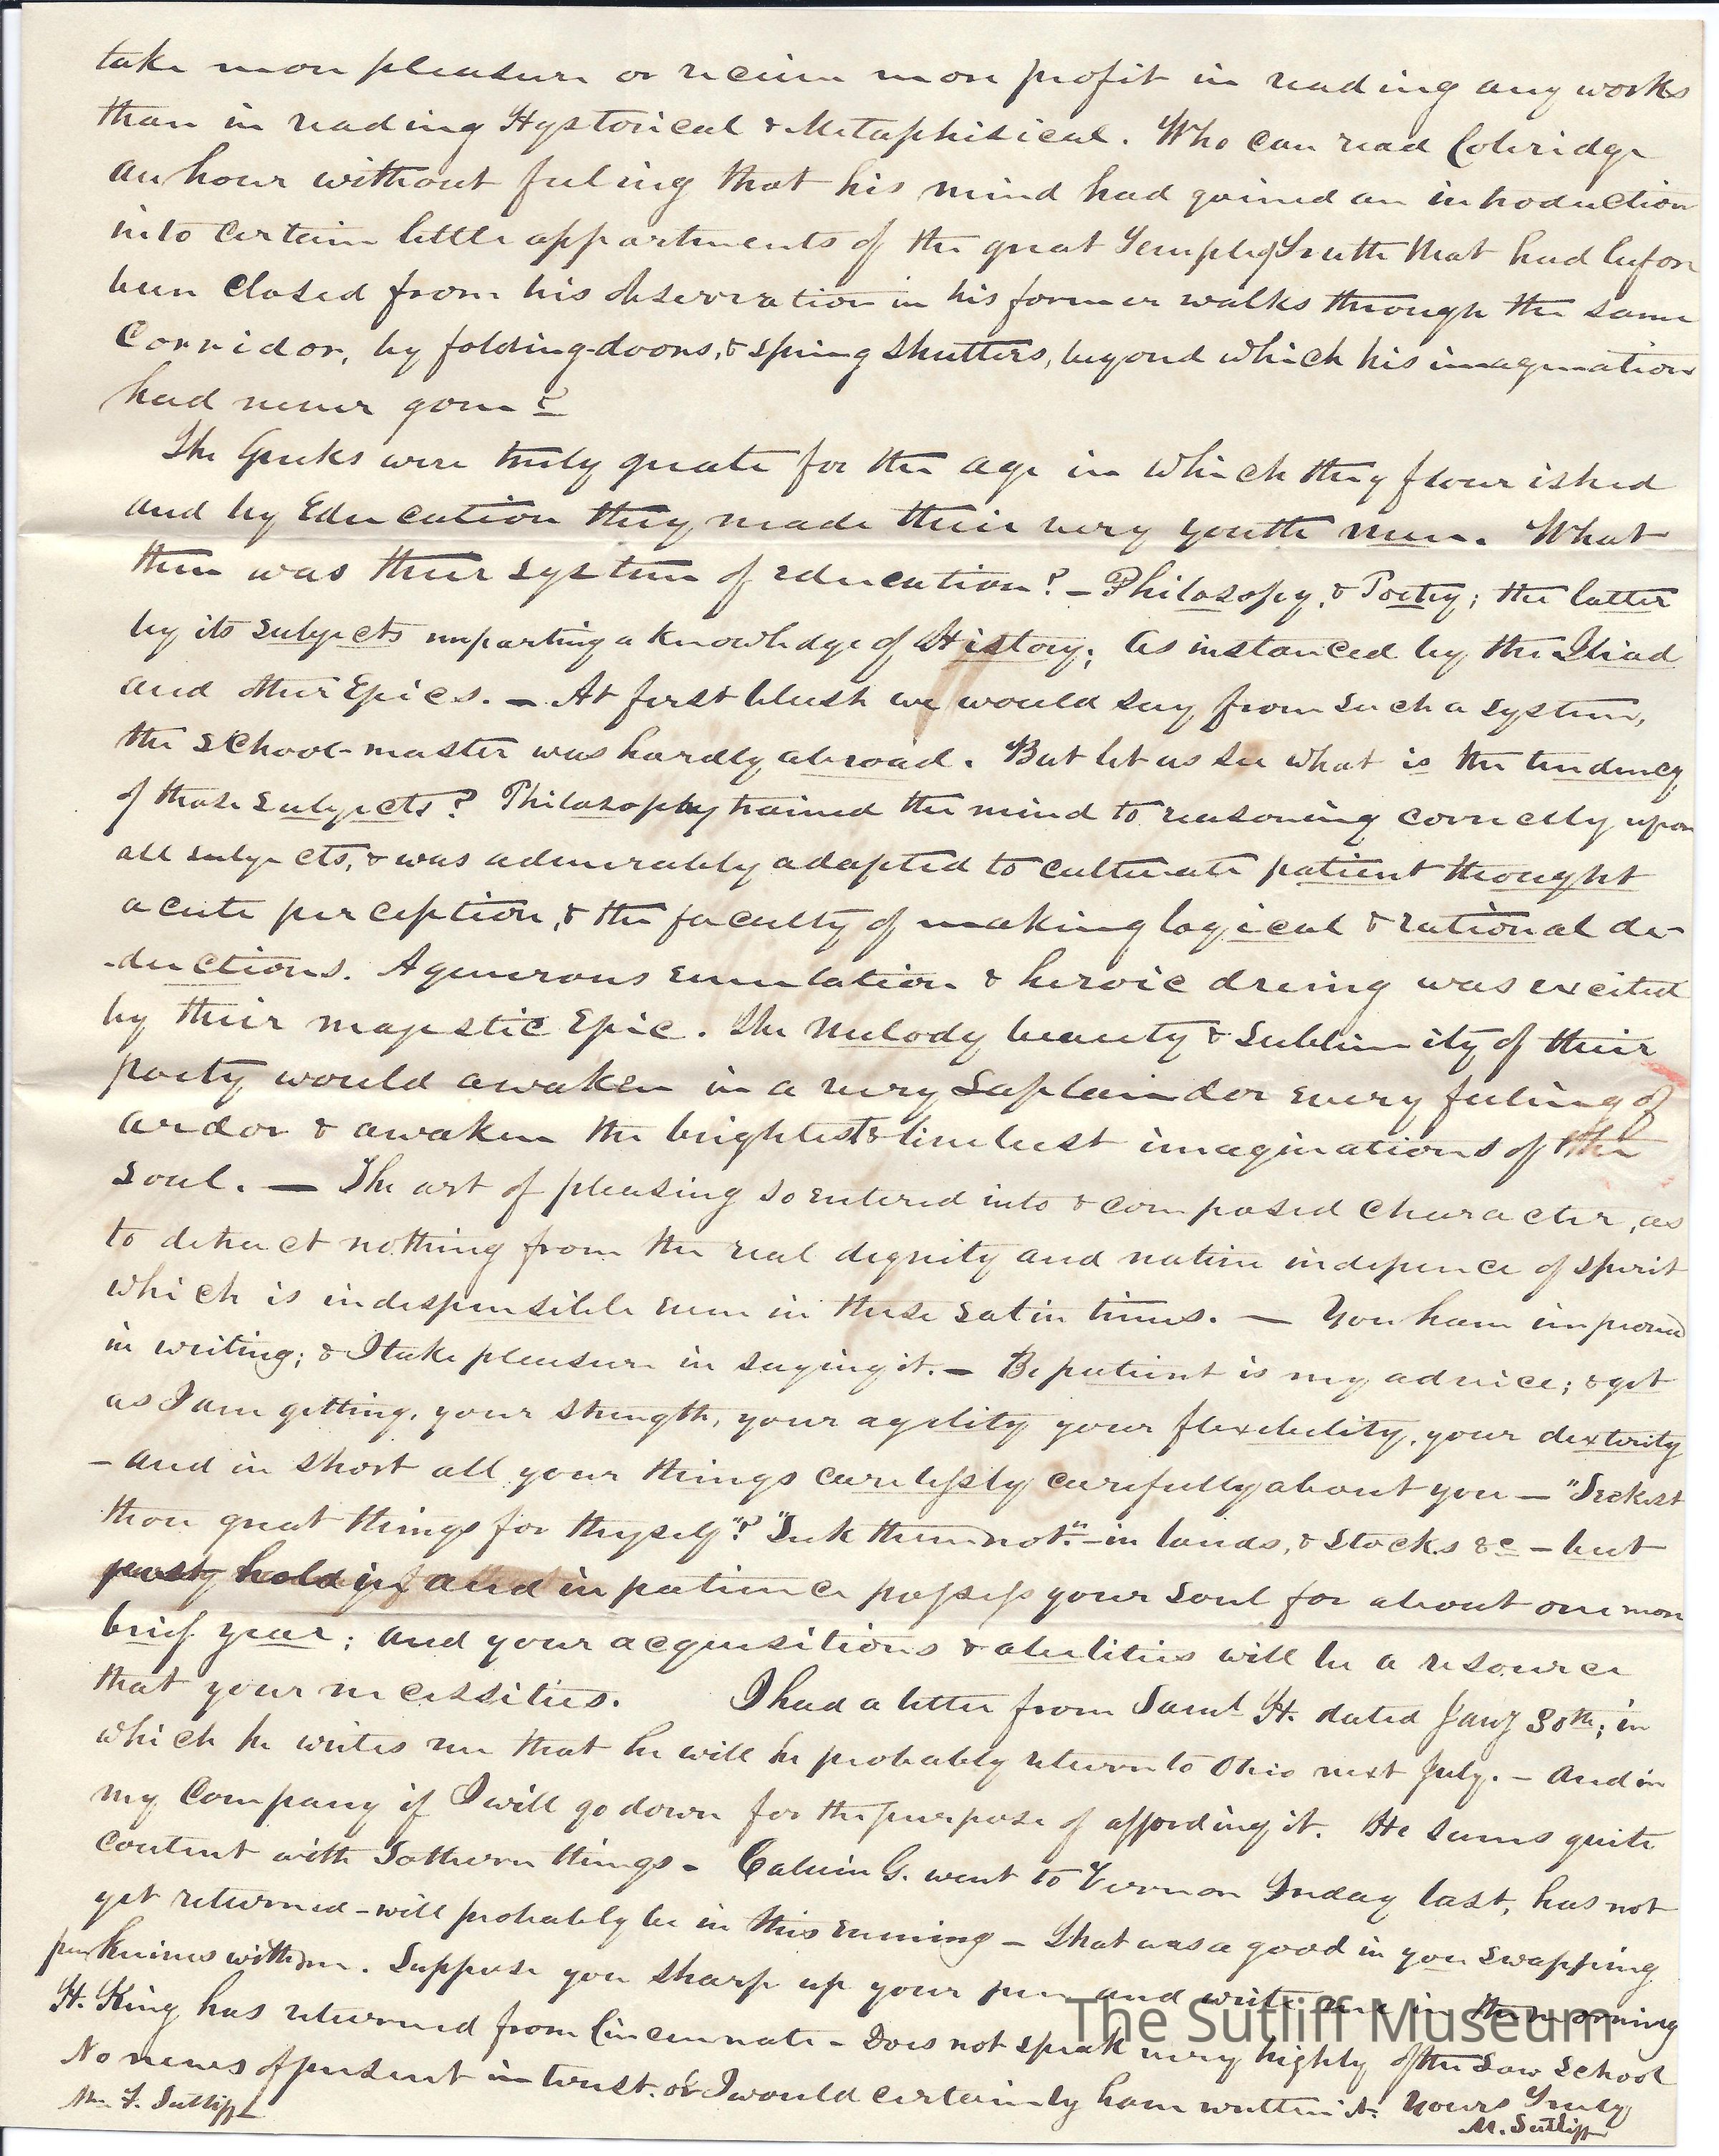 take more pleasure or recieve more profit in reading any works
than in reading Hystorical & Metaphisical. Who can read Coleridge
an hour without feeling that his mind had gained an introduction
into certain little appartments of the great Temple of Truth that had before
been closed from his observation in his former walks through the same
Corridor, by folding-doors, & spring shutters, beyond which his imagination
had never gone?
The Greeks were truly greate for the age in which they flourished
and by Education they made their very youth men. What
then was their system of education? – Philosopy, & Poetry; the latter
by its subjects imparting a knowledge of History; as instanced by the Iliad
and other Epics. – At first blush we would say from such a system,
the school-master was hardly abroad. But let us see what is the tendency
of those subjects? Philosophy trained the mind to reasoning correctly upon
all subjects, & was admirably adapted to cultivate patient thought
acute perception, & the faculty of making logical & rational de-
-ductions. A generous emulation & heroic dreing was excited
by their majestic Epic. The Melody beauty & sublimity of their
poety would awaken in a very Laplander every feeling of
ardor & awaken the brightest & liveliest imaginations of the
soul. — The art of pleasing so entered into & composed character, as
to detract nothing from the real dignity and native indepence of spirit
which is indespensible even in these satin times. — You have improved
in writing; & I take pleasure in saying it. – Be patient is my advice; & get
as I am getting, your strength, your agility your flexibility, your dexterity
– and in short all your things carelessly carefully about you — "Seekest
thou great things for thyself"? "Seek them not." – in lands, & stocks &c – but
and in patience possess your soul for about one more
brief year; and your acquisitions & abilities will be a resource
that your necessities. I had a letter from Saml H. dated Jany 30th; in
which he writes me that he will be probably return to Ohio next July. – And in
my Company if I will go down for the purpose of affording it. He seems quite
content with Sothern things – Calvin G. went to Vernon Friday last, has not
yet returned – will probably be in this evening – That was a good in you swapping
pen knives with me. Suppose you sharp up your pen and write me in the morning
H. King has returned from Cincinnati – Does not speak very highly of the Law School
No news of present interest. or I would certainly have written it. Yours Truly
Mr F. Sutliff
M. Sutliff
The Sutliff Museum